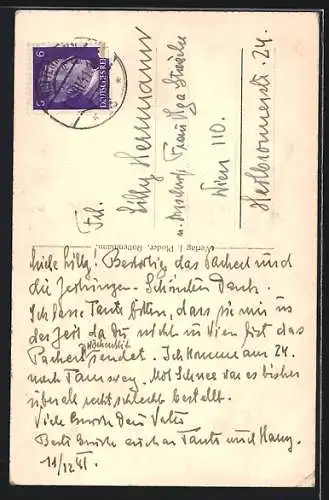 Frl.
Lilly Herrmann
u. Anschrift Frau Olga
Wien 110.
Heilbronnerstr. 24.
6 DEUTSCHES REICH 6
Verlag J. Ploder, Rottenmann.
Liebe Lilly! Bestätige das Packerl und
die Zeitungen. Schönsten Dank.
Ich lasse Tante bitten, dass sie mir in
der Zeit da Du nicht in Wien bist das
Packerl wöchentlich sendet. Ich komme am 24.
nach Tamsweg. Mit Schnee war es bisher
überall recht schlecht bestellt.
Viele Grüsse Dein Vater
Beste Grüsse auch an Tante und
11/12 41.